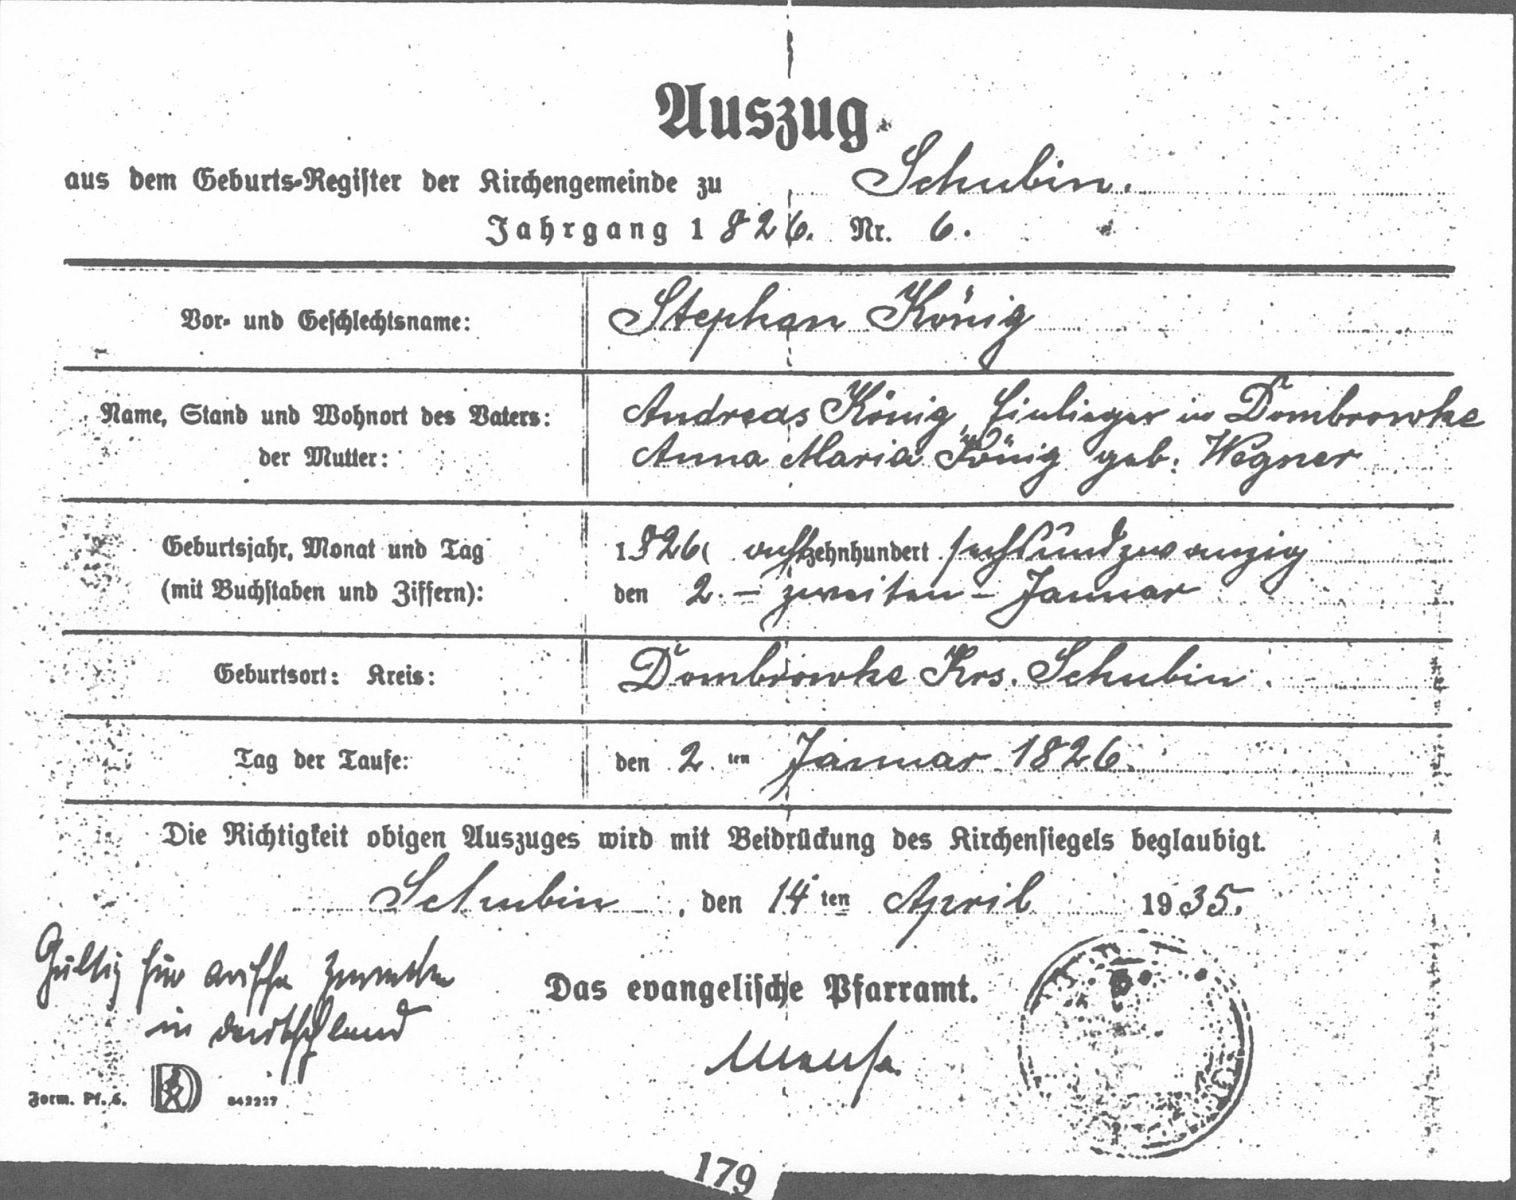 Auszug
aus dem Geburts-Register der Kirchengemeinde zu Schubin.
Jahrgang 1826. Nr. 6.
Vor- und Geschlechtsname: Stephan König
Name, Stand und Wohnort des Vaters: Andreas König, Einlieger in Dombrowke
der Mutter: Anna Maria König geb. Wegner
Geburtsjahr, Monat und Tag 1826 achtzehnhundert sechsundzwanzig
(mit Buchstaben und Ziffern): den 2. - zweiten - Januar
Geburtsort: Kreis: Dombrowke Krs. Schubin.
Tag der Taufe: den 2. ten Januar 1826.
Die Richtigkeit obigen Auszuges wird mit Beidrückung des Kirchensiegels beglaubigt.
Schubin, den 14 ten April 1935.
Gültig für arische Zwecke
in Deutschland
Das evangelische Pfarramt.
Form. Pf. 6. 842227
179